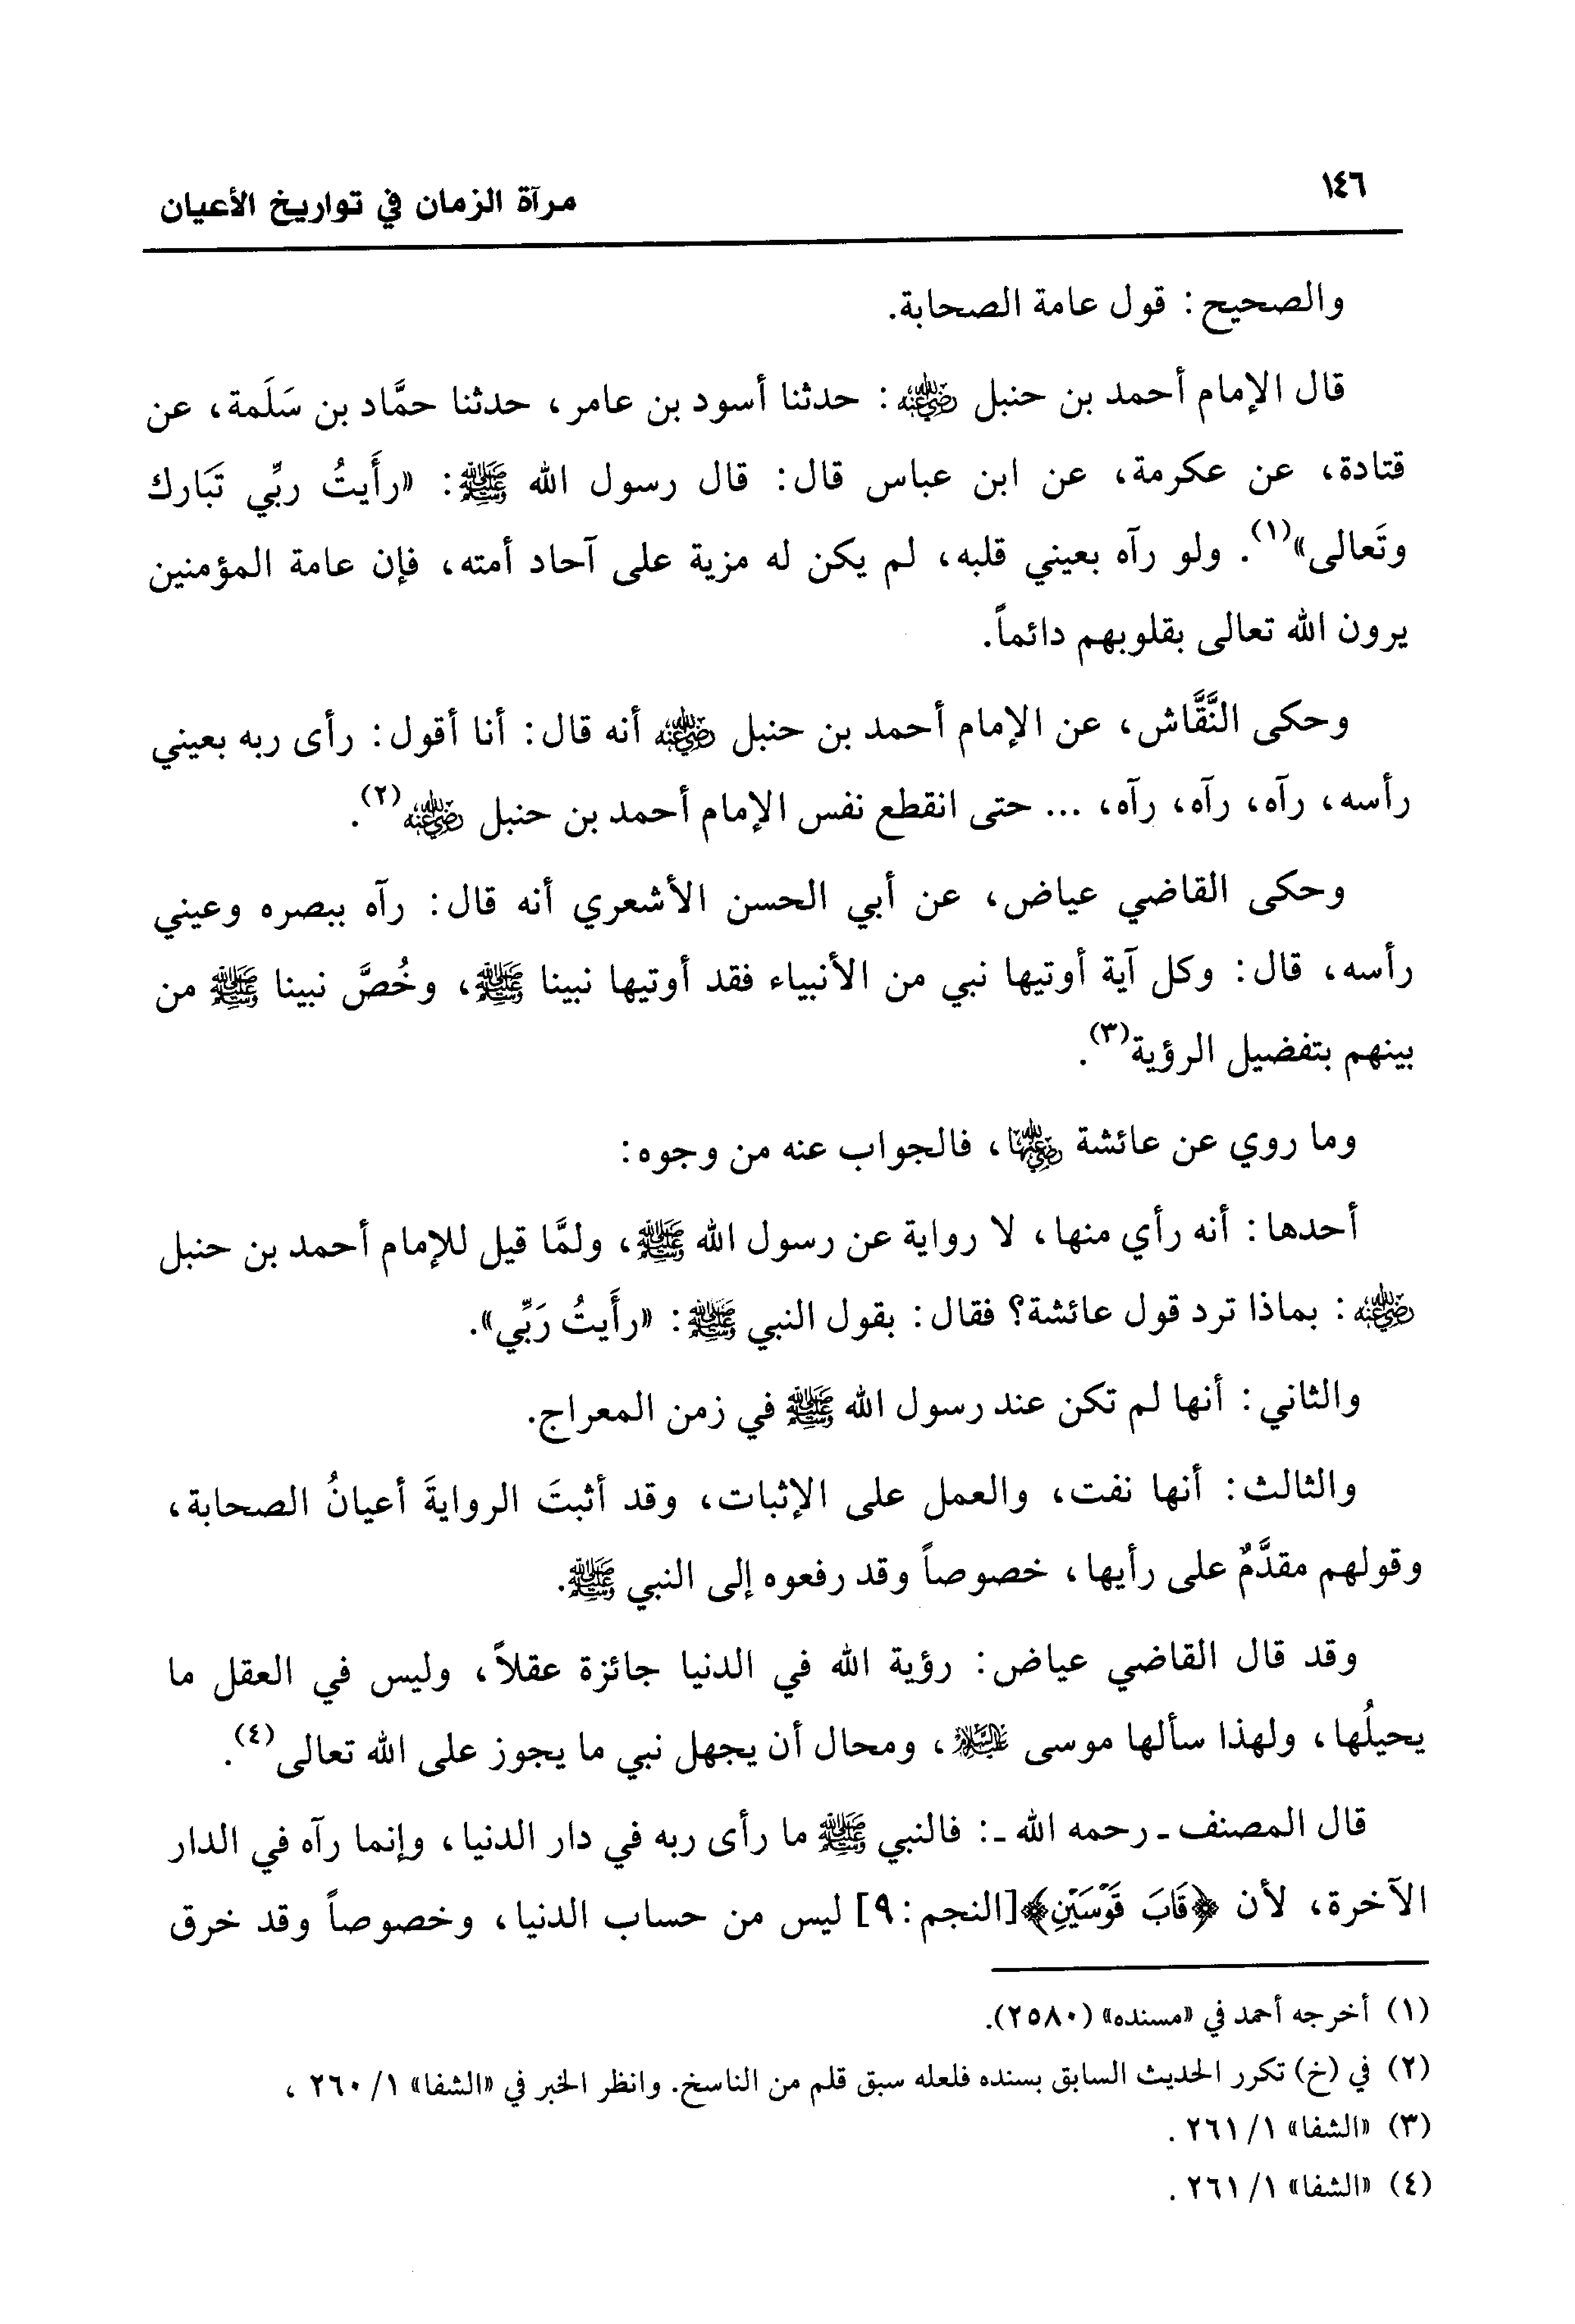 ١٤٦ مرآة الزمان في تواريخ الأعيان
والصحيح: قول عامة الصحابة.
قال الإمام أحمد بن حنبل رضي الله عنه: حدثنا أسود بن عامر، حدثنا حمَّاد بن سَلَمة، عن
قتادة، عن عكرمة، عن ابن عباس قال: قال رسول الله ﷺ: «رأَيتُ ربِّي تَبَارك
وتَعالى»(١). ولو رآه بعيني قلبه، لم يكن له مزية على آحاد أمته، فإن عامة المؤمنين
يرون الله تعالى بقلوبهم دائماً.
وحكى النَّقَّاش، عن الإمام أحمد بن حنبل رضي الله عنه أنه قال: أنا أقول: رأى ربه بعيني
رأسه، رآه، رآه، رآه، ... حتى انقطع نفس الإمام أحمد بن حنبل رضي الله عنه(٢).
وحكى القاضي عياض، عن أبي الحسن الأشعري أنه قال: رآه ببصره وعيني
رأسه، قال: وكل آية أوتيها نبي من الأنبياء فقد أوتيها نبينا ﷺ، وخُصَّ نبينا ﷺ من
بينهم بتفضيل الرؤية(٣).
وما روي عن عائشة رضي الله عنها، فالجواب عنه من وجوه:
أحدها: أنه رأي منها، لا رواية عن رسول الله ﷺ، ولمَّا قيل للإمام أحمد بن حنبل
رضي الله عنه: بماذا ترد قول عائشة؟ فقال: بقول النبي ﷺ: «رأَيتُ رَبِّي».
والثاني: أنها لم تكن عند رسول الله ﷺ في زمن المعراج.
والثالث: أنها نفت، والعمل على الإثبات، وقد أثبتَ الروايةَ أعيانُ الصحابة،
وقولهم مقدَّمٌ على رأيها، خصوصاً وقد رفعوه إلى النبي ﷺ.
وقد قال القاضي عياض: رؤية الله في الدنيا جائزة عقلاً، وليس في العقل ما
يحيلُها، ولهذا سألها موسى عليه السلام، ومحال أن يجهل نبي ما يجوز على الله تعالى(٤).
قال المصنف ـ رحمه الله ـ: فالنبي ﷺ ما رأى ربه في دار الدنيا، وإنما رآه في الدار
الآخرة، لأن ﴿قَابَ قَوْسَيْنِ﴾[النجم: ٩] ليس من حساب الدنيا، وخصوصاً وقد خرق
(١) أخرجه أحمد في «مسنده» (٢٥٨٠).
(٢) في (خ) تكرر الحديث السابق بسنده فلعله سبق قلم من الناسخ. وانظر الخبر في «الشفا» ١/ ٢٦٠ ،
(٣) «الشفا» ١/ ٢٦١ .
(٤) «الشفا» ١/ ٢٦١ .